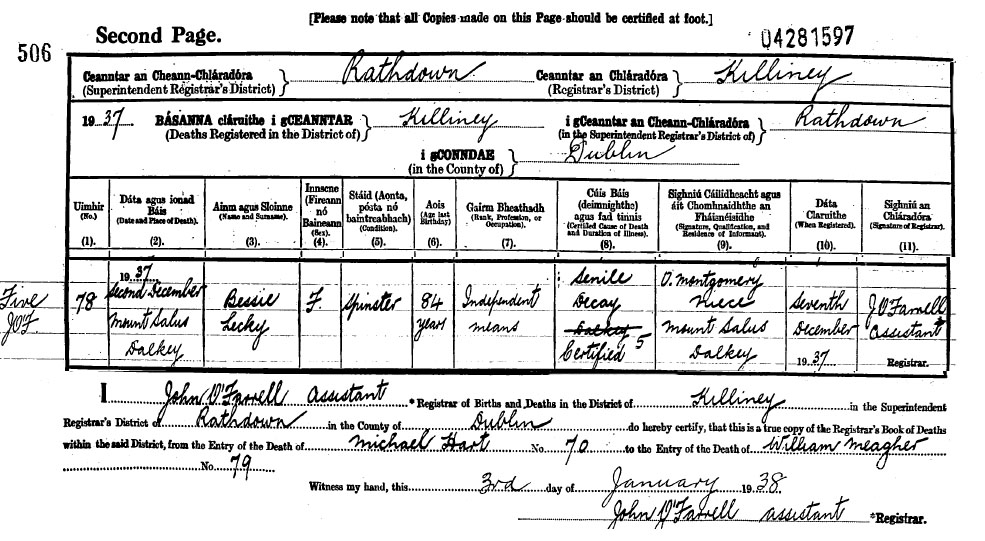 [Please note that all Copies made on this Page should be certified at foot.]
506
Second Page.
04281597
Ceanntar an Cheann-Chláradóra
(Superintendent Registrar's District)
Rathdown
Ceanntar an Chláradóra
(Registrar's District)
Killiney
1937 BÁSANNA cláruithe i gCEANNTAR
(Deaths Registered in the District of)
Killiney
i gCeanntar an Cheann-Chláradóra
(in the Superintendent Registrar's District of)
Rathdown
i gCONNDAE
(in the County of)
Dublin
Uimhir
(No.)
(1).
Dáta agus ionad
Báis
(Date and Place of Death).
(2).
Ainm agus Sloinne
(Name and Surname).
(3).
Innscne
(Fireann
nó
Baineann
(Sex).
(4).
Stáid (Aonta,
pósta nó
baintreabhach)
(Condition).
(5).
Aois
(Age last
Birthday)
(6).
Gairm Bheathadh
(Rank, Profession, or
Occupation).
(7).
Cúis Báis
(deimnighthe)
agus fad tinnis
(Certified Cause of Death
and Duration of Illness).
(8).
Sighniú Cáilidheacht agus
áit Chomhnaidhthe an
Fháisnéisidhe
(Signature, Qualification, and
Residence of Informant).
(9).
Dáta
Claruithe
(When Registered).
(10).
Sighniú an
Chláradóra
(Signature of Registrar).
(11).
Five
JO'F
78
1937
Second December
Mount Salus
Dalkey
Bessie
Lecky
F
Spinster
84
years
Independent
means
Senile
Decay
Dalkey
Certified 5
O. Montgomery
Niece
Mount Salus
Dalkey
Seventh
December
1937
J O'Farrell
Assistant
Registrar.
I John O'Farrell Assistant *Registrar of Births and Deaths in the District of Killiney in the Superintendent
Registrar's District of Rathdown in the County of Dublin do hereby certify, that this is a true copy of the Registrar's Book of Deaths
within the said District, from the Entry of the Death of Michael Hart No 70 to the Entry of the Death of William Meagher
No 79
Witness my hand, this 3rd day of January 1938
John O'Farrell assistant *Registrar.